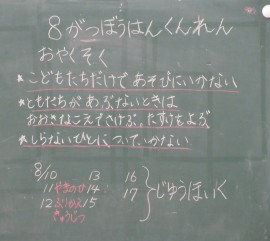 8がつぼうはんくんれん
おやくそく
★こどもたちだけであそびにいかない
★ともだちがあぶないときは
おおきなこえでさけぶ。たすけをよぶ
★しらないひとについていかない
8/10 13 16
11やまのひ 14 17 じゆうほいく
12ふりかえ 15
きゅうじつ